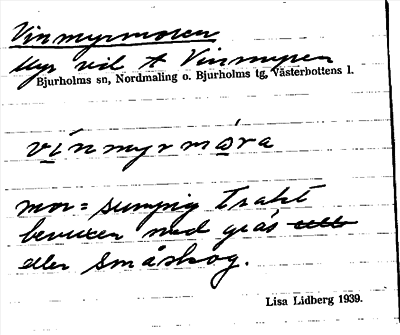 Vinmyrmoran
Myr vid t Vinmyren
Bjurholms sn, Nordmaling o. Bjurholms tg, Västerbottens l.
vínmyrmåra
mor = sumpig trakt
bevuxen med gräs
eller småskog.
Lisa Lidberg 1939.